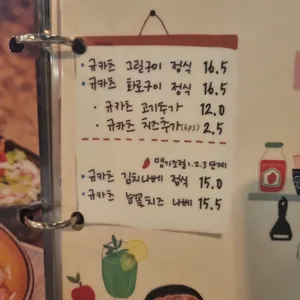 • 규카츠 그릴구이 정식 16.5
• 규카츠 화로구이 정식 16.5
• 규카츠 고기추가 12.0
• 규카츠 치즈추가(6ps) 2.5
맵기조절 1.2.3단계
• 규카츠 김치나베 정식 15.0
• 규카츠 눈꽃치즈 나베 15.5